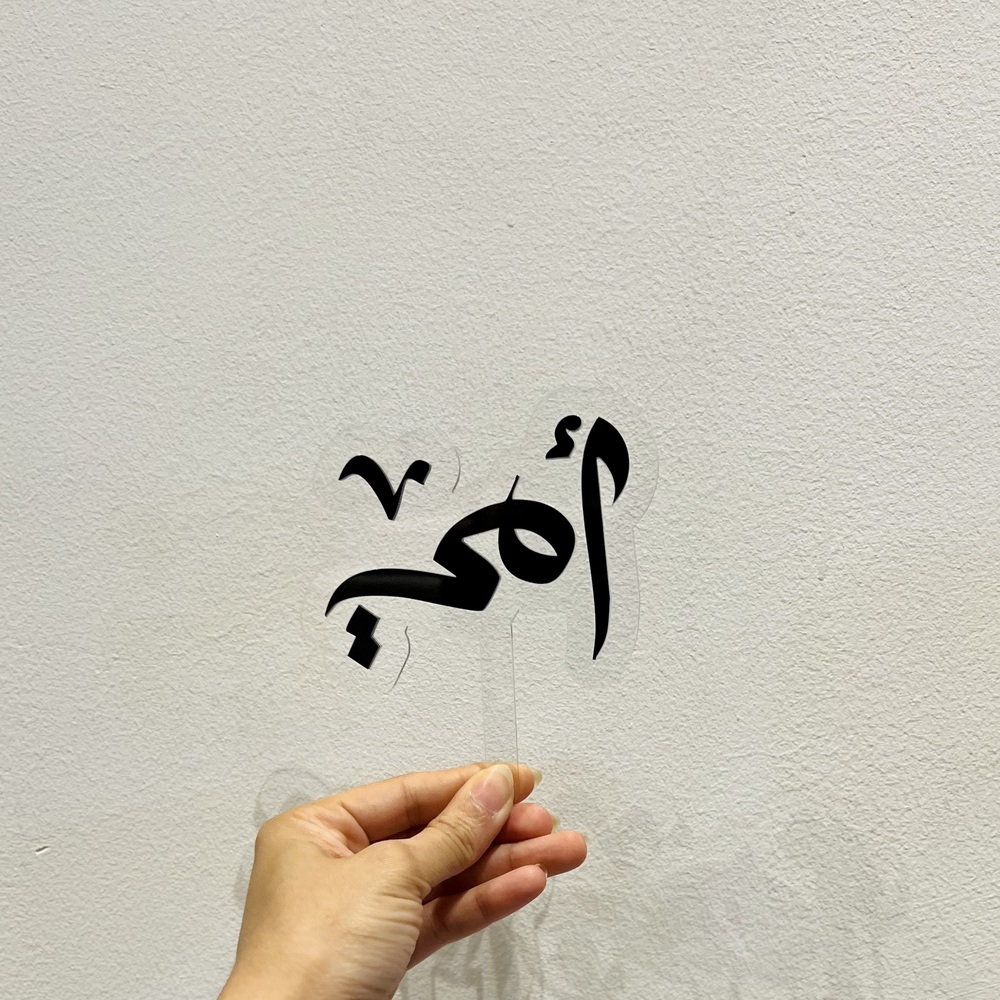 أمي